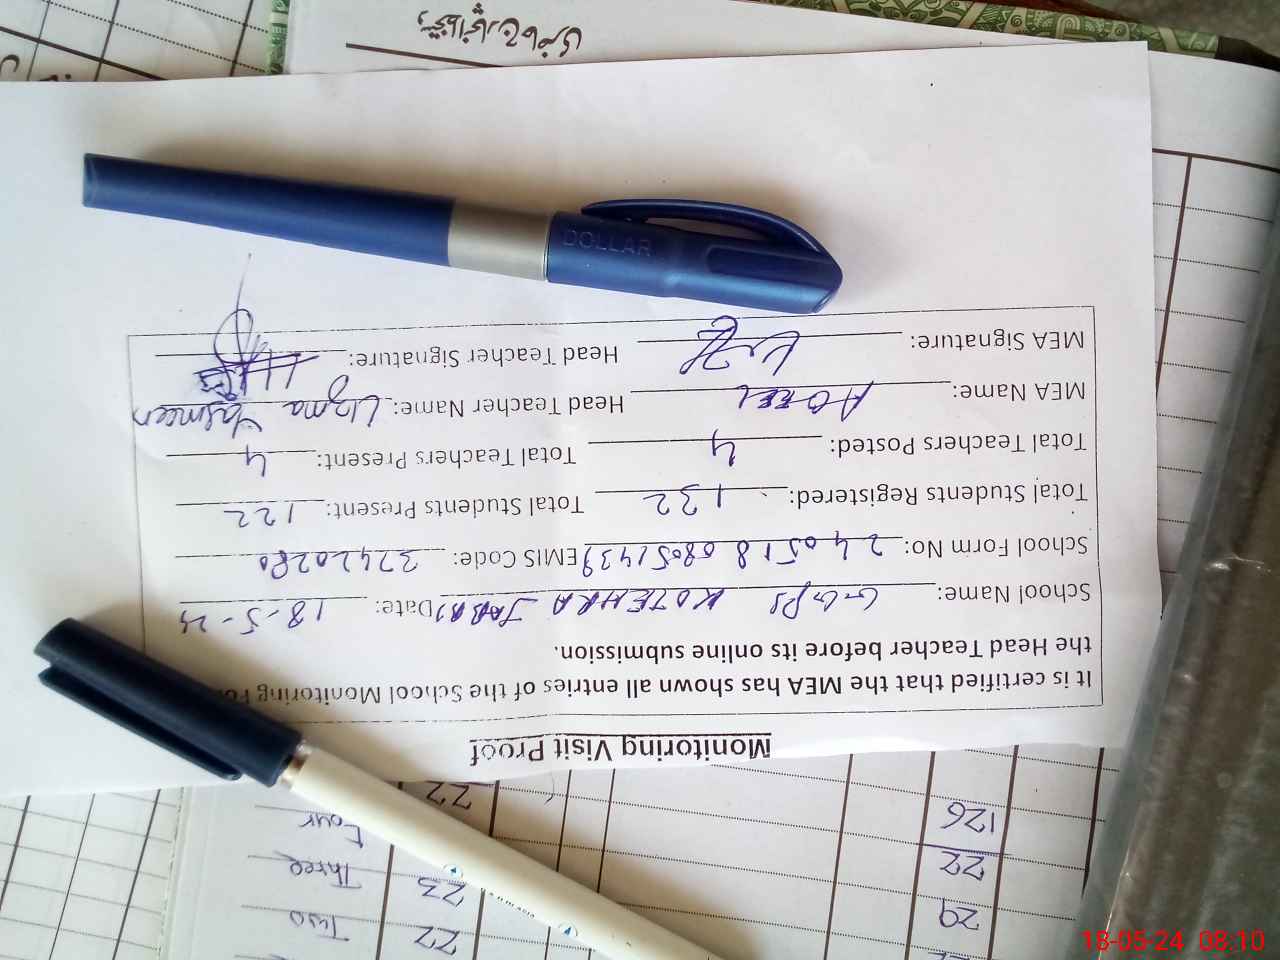 Monitoring Visit Proof
It is certified that the MEA has shown all entries of the School Monitoring
the Head Teacher before its online submission.
School Name: GGPS KOTEHRA JABBI Date: 18-5-24
School Form No: 240518 08051439 EMIS Code: 37420280
Total Students Registered: 132 Total Students Present: 122
Total Teachers Posted: 4 Total Teachers Present: 4
MEA Name: Head Teacher Name: Uzma Yasmeen
MEA Signature: Head Teacher Signature:
DOLLAR
Two 22
Three 23
Four 22
29
22
126
18-05-24 08:10